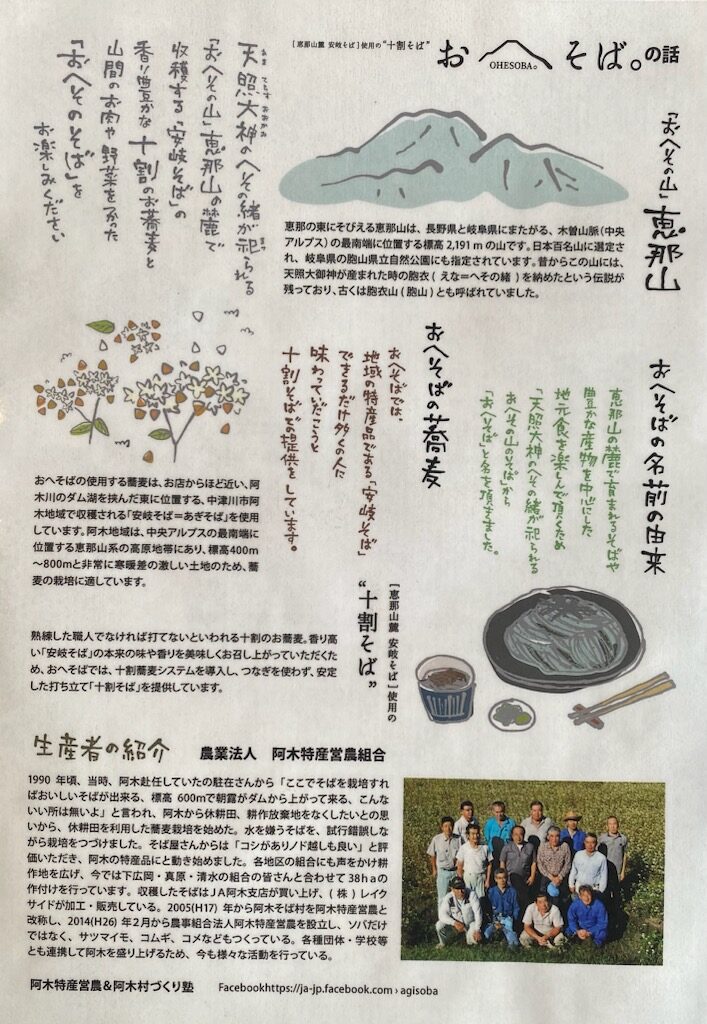 [恵那山麓 安岐そば]使用の"十割そば"
おへそば。の話
OHESOBA。
天照大神のへその緒が祀られる
あま てらす おおかみ
お まつ
「おへその山」恵那山の麓で
収穫する「安岐そば」の
香り豊かな十割のお蕎麦と
山間のお肉や野菜をつかった
「おへそのそば」を
お楽しみください
「おへその山」恵那山
恵那の東にそびえる恵那山は、長野県と岐阜県にまたがる、木曽山脈(中央
アルプス)の最南端に位置する標高 2,191 m の山です。日本百名山に選定さ
れ、岐阜県の胞山県立自然公園にも指定されています。昔からこの山には、
天照大御神が産まれた時の胞衣( えな=へその緒 )を納めたという伝説が
残っており、古くは胞衣山(胞山)とも呼ばれていました。
おへそばの名前の由来
恵那山の麓で育まれるそばや
豊かな産物を中心にした
地元食を楽しんで頂くため
「天照大神のへその緒が祀られる
おへその山のそば」から
「おへそば」と名を頂きました。
おへそばの蕎麦
おへそばでは、
地域の特産品である「安岐そば」
できるだけ多くの人に
味わっていただこうと
十割そばでの提供をしています。
おへそばの使用する蕎麦は、お店からほど近い、阿
木川のダム湖を挟んだ東に位置する、中津川市阿
木地域で収穫される「安岐そば=あぎそば」を使用
しています。阿木地域は、中央アルプスの最南端に
位置する恵那山系の高原地帯にあり、標高400m
〜800mと非常に寒暖差の激しい土地のため、蕎
麦の栽培に適しています。
[恵那山麓 安岐そば]使用の
"十割そば"
熟練した職人でなければ打てないといわれる十割のお蕎麦。香り高
い「安岐そば」の本来の味や香りを美味しくお召し上がっていただくた
め、おへそばでは、十割蕎麦システムを導入し、つなぎを使わず、安定
した打ち立て「十割そば」を提供しています。
生産者の紹介 農業法人 阿木特産営農組合
1990 年頃、当時、阿木赴任していたの駐在さんから「ここでそばを栽培すれ
ばおいしいそばが出来る、標高 600mで朝露がダムから上がって来る、こんな
いい所は無いよ」と言われ、阿木から休耕田、耕作放棄地をなくしたいとの思
いから、休耕田を利用した蕎麦栽培を始めた。水を嫌うそばを、試行錯誤しな
がら栽培をつづけました。そば屋さんからは「コシがありノド越しも良い」と評
価いただき、阿木の特産品にと動き始めました。各地区の組合にも声をかけ耕
作地を広げ、今では下広岡・真原・清水の組合の皆さんと合わせて38haの
作付けを行っています。収穫したそばはJA阿木支店が買い上げ、(株)レイク
サイドが加工・販売している。2005(H17) 年から阿木そば村を阿木特産営農と
改称し、2014(H26) 年2月から農事組合法人阿木特産営農を設立し、ソバだけ
ではなく、サツマイモ、コムギ、コメなどもつくっている。各種団体・学校等
とも連携して阿木を盛り上げるため、今も様々な活動を行っている。
阿木特産営農&阿木村づくり塾 Facebookhttps://ja-jp.facebook.com › agisoba